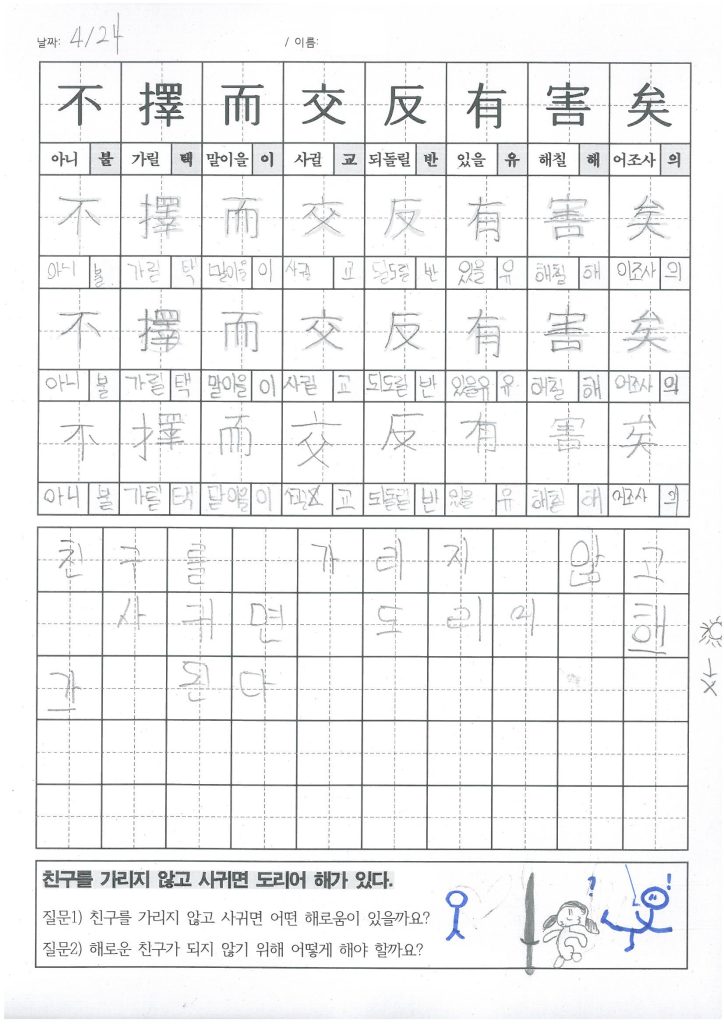 날짜: 4/24 / 이름:
不 擇 而 交 反 有 害 矣
아니 불 가릴 택 말이을 이 사귈 교 되돌릴 반 있을 유 해칠 해 어조사 의
不 擇 而 交 反 有 害 矣
아니 불 가릴 택 말이을 이 사귈 교 되도릴 반 있을 유 해칠 해 어조사 의
不 擇 而 交 反 有 害 矣
아니 불 가릴 택 말이을 이 사귈 교 되도릴 반 있을유 유 해칠 해 어조사 의
不 擇 而 交 反 有 害 矣
아니 불 가릴 택 말이을 이 교 되돌릴 반 있을 유 해칠 해 어조사 의
친구를 가리지 않고
사귀면 도리어 해
가 된다
친구를 가리지 않고 사귀면 도리어 해가 있다.
질문1) 친구를 가리지 않고 사귀면 어떤 해로움이 있을까요?
질문2) 해로운 친구가 되지 않기 위해 어떻게 해야 할까요?
? !